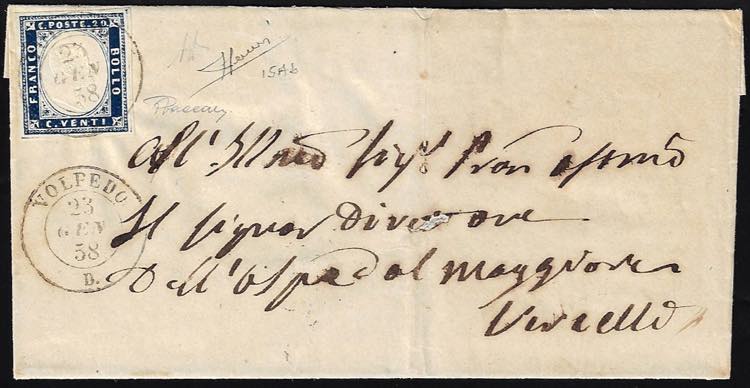 C. POSTE. 20.
FRANCO
BOLLO
C. VENTI
23
GEN
58
15Ab
VOLPEDO
23
GEN
58
D.
All' Sig.
Il Signor Direttore
Dell' Ospedal Maggiore
Vercelli